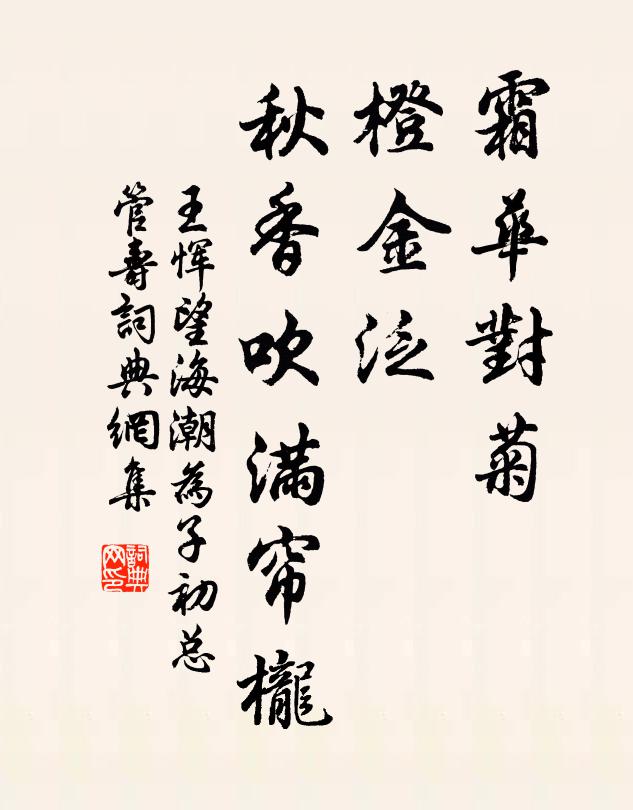 霜華對菊
橙金泛
秋香吹滿帘櫳
王惲望海潮為子初总
管壽詞典網集
詞典
网印